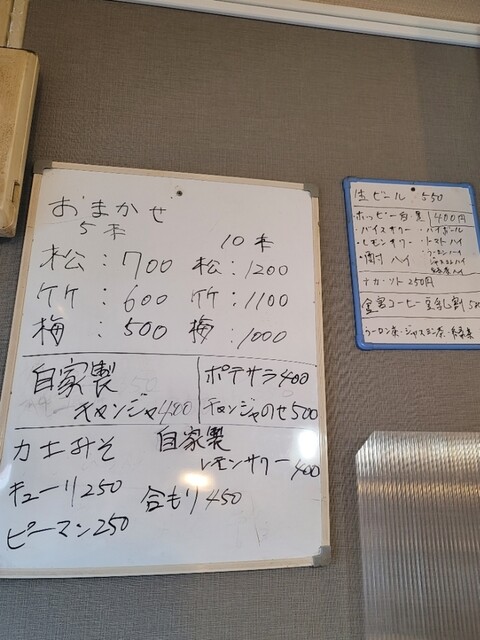 おまかせ
5本 10本
松:700 松:1200
竹:600 竹:1100
梅:500 梅:1000
自家製
チャンジャ400
ポテサラ400
チャンジャのせ500
力士みそ
キューリ250
ピーマン250
合もり450
自家製
レモンサワー400
生ビール 550
・ホッピー白黒 400円
バイスサワー ・ハイボール
・レモンサワー ・トマトハイ
・酎ハイ ・ウーロンハイ
ジャスミンハイ
ナカ・ソト 250円
金宮コーヒー豆乳割
ウーロン茶・ジャスミン茶・